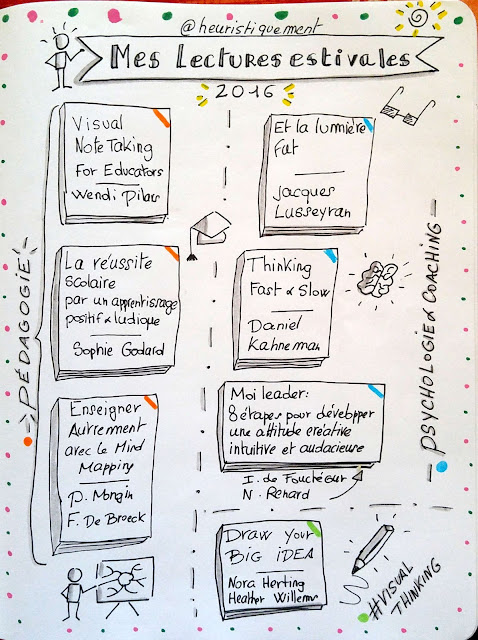 @heuristiquement
Mes Lectures estivales
2016
PÉDAGOGIE
Visual
Note Taking
For Educators
Wendi Pillars
La réussite
scolaire
par un apprentissage
positif & ludique
Sophie Godard
Enseigner
Autrement
avec le Mind
Mapping
P. Mongin
F. De Broeck
PSYCHOLOGIE & COACHING
Et la lumière
fut
Jacques
Lusseyran
Thinking
Fast & Slow
Daniel
Kahneman
Moi leader:
8 étapes pour développer
une attitude créative
intuitive et audacieuse
I. de Fouchécour
N. Renard
Draw your
BIG IDEA
Nora Herting
Heather Willems
#VISUAL
THINKING